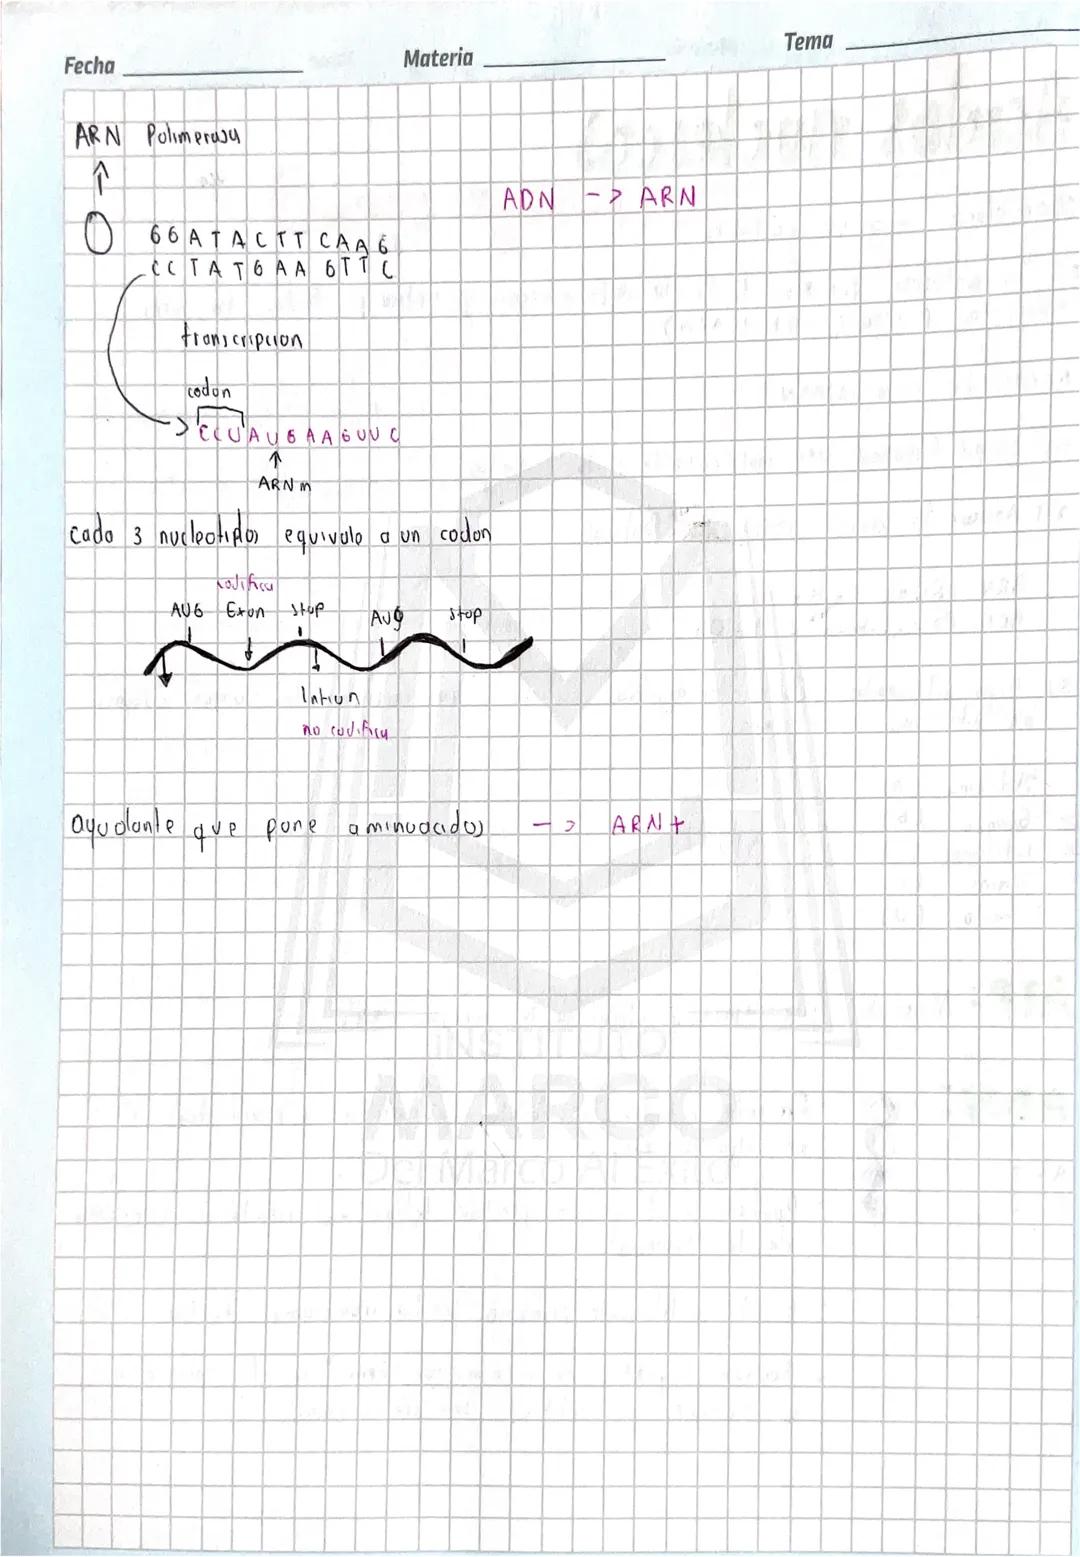 Fecha Materia Tema
ARN Polimerasa
ADN -> ARN
GGATACTTCAAG
CCTATGAAGTTC
transcripcion
codon
CCUAUGAAGUUC
ARNm
Cada 3 nucleotidos equivale a un codon
codifica
AUG Exon Stop AUG Stop
Intron
no codifica
ayudante que pone aminoacidos -> ARNt
instituto
MARCO
Del Marco Al Éxito